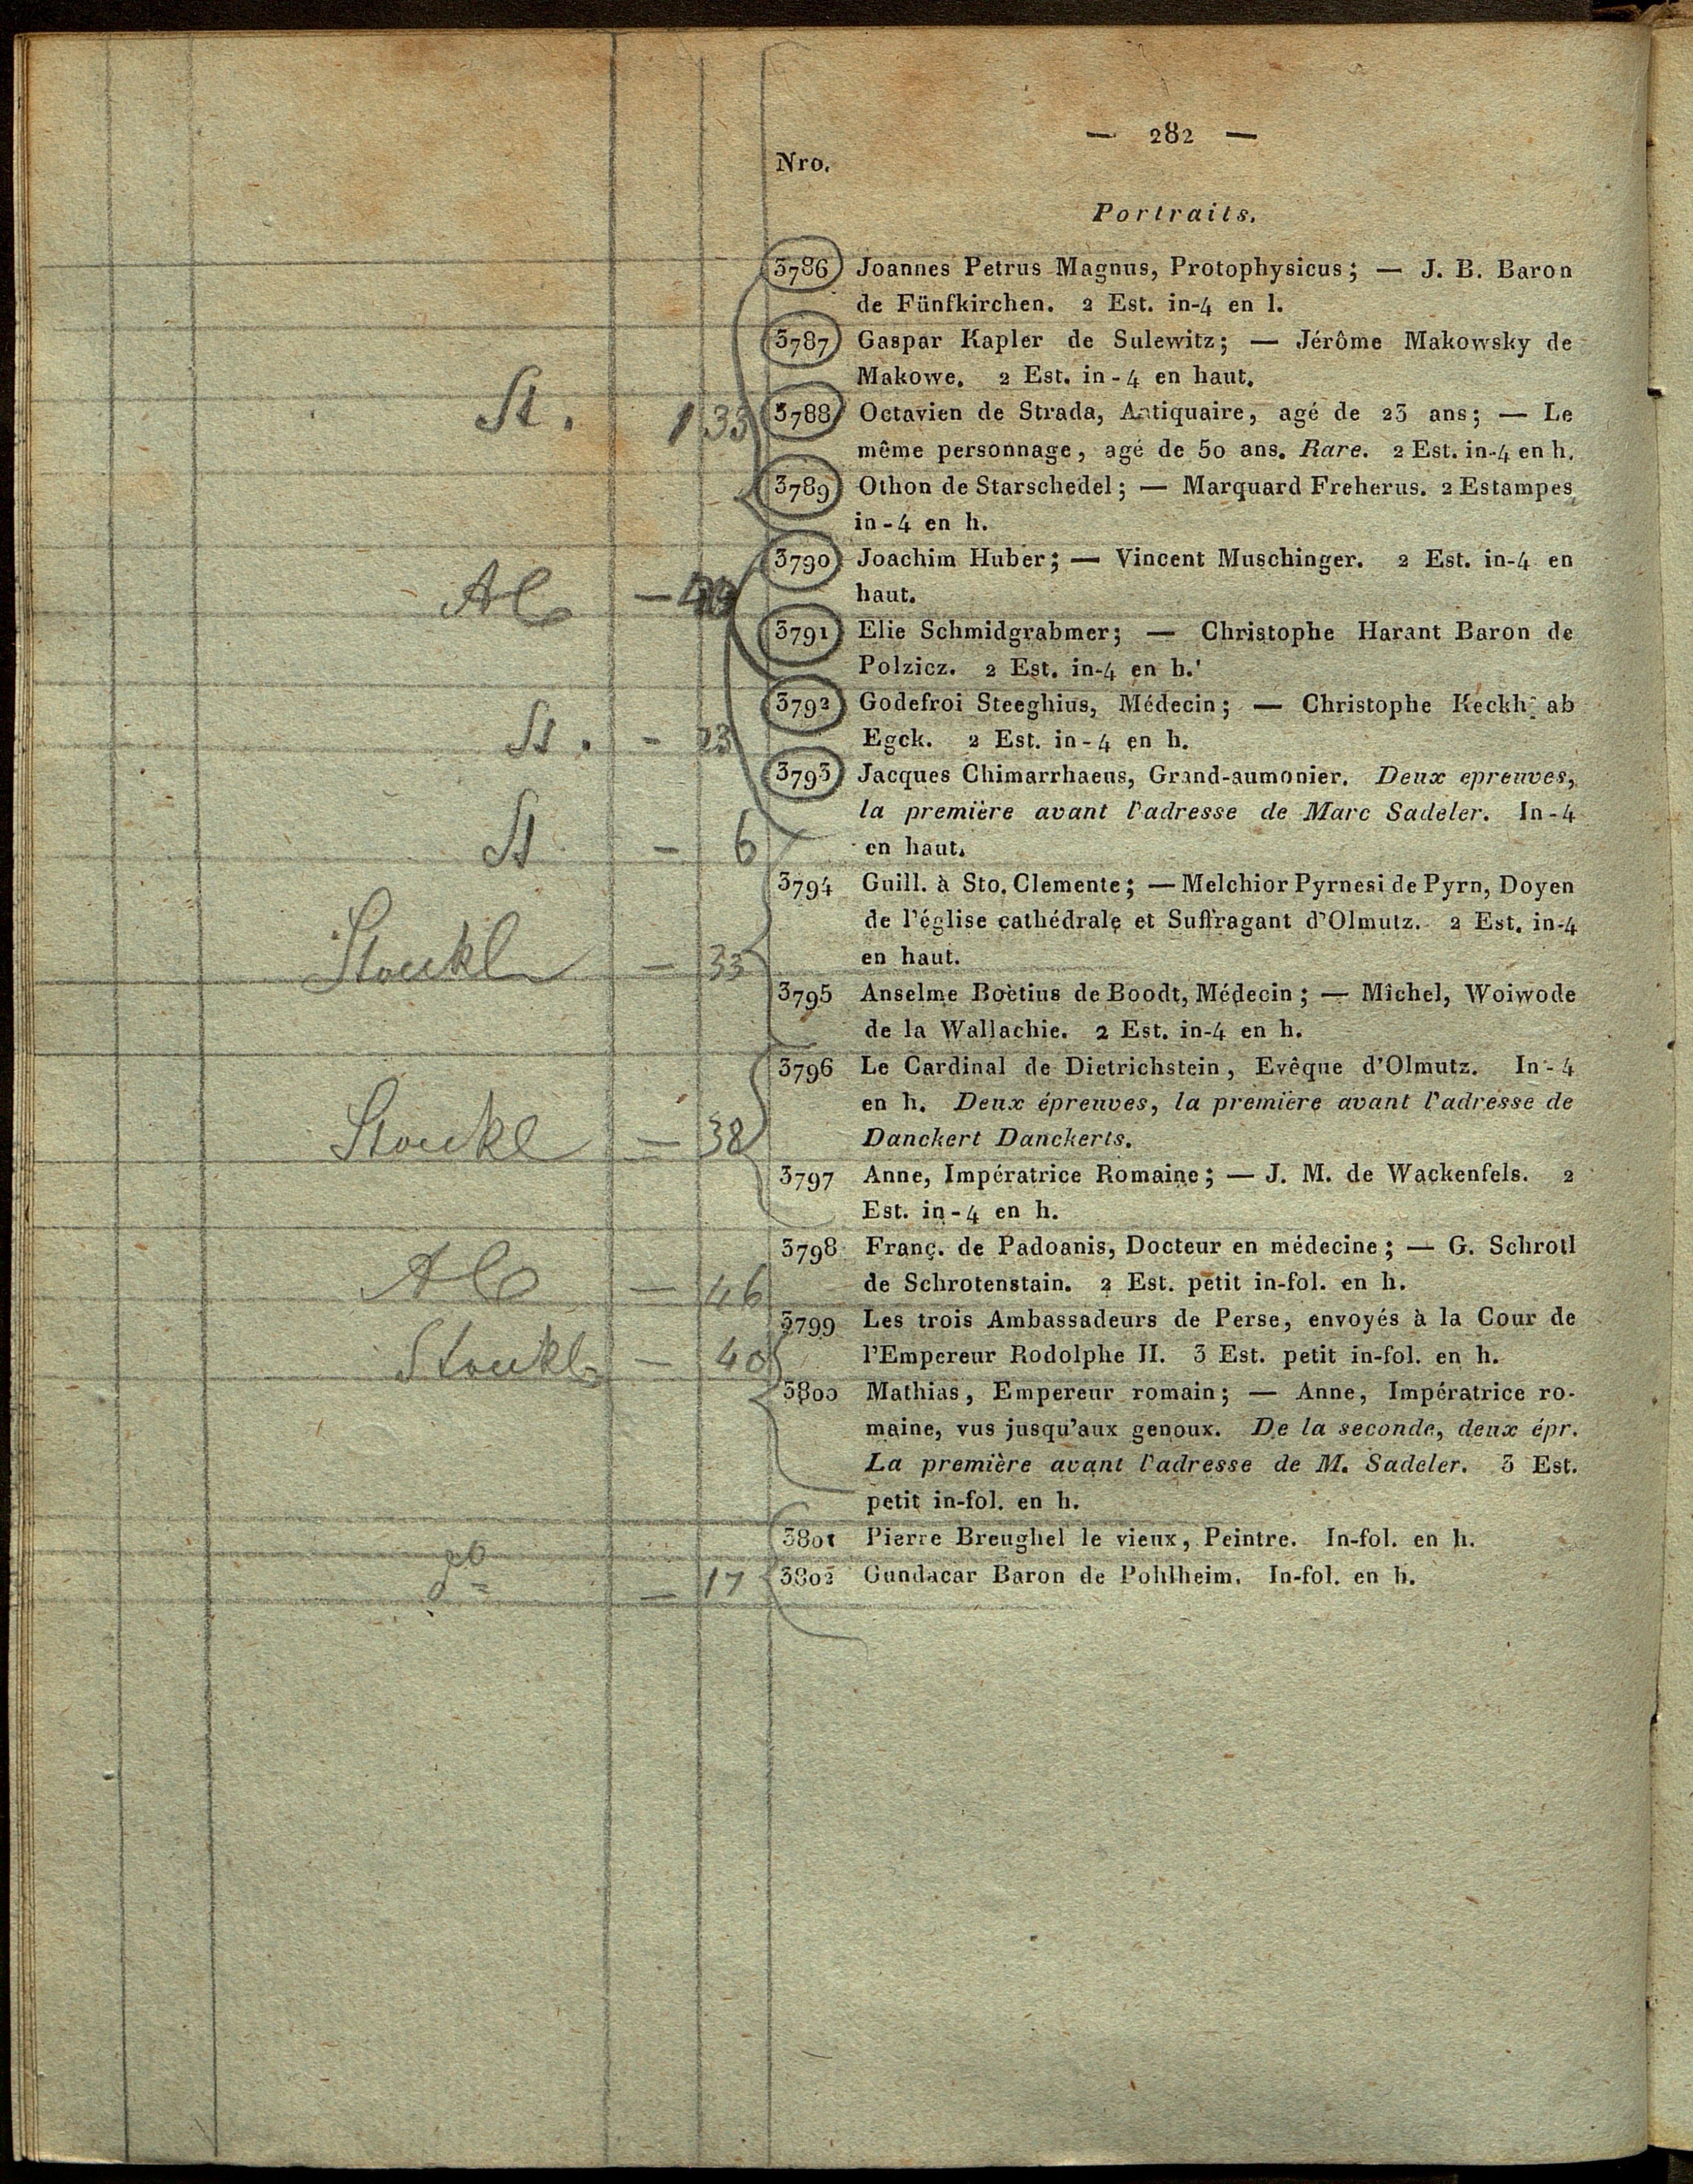 — 282 —
Nro.
Portraits.
3786 Joannes Petrus Magnus, Protophysicus; — J. B. Baron
de Fünfkirchen. 2 Est. in-4 en l.
3787 Gaspar Kapler de Sulewitz; — Jérôme Makowsky de
Makowe. 2 Est. in-4 en haut.
St. 1 33 3788 Octavien de Strada, Antiquaire, agé de 23 ans; — Le
même personnage, agé de 50 ans. Rare. 2 Est. in-4 en h.
3789 Othon de Starschedel; — Marquard Freherus. 2 Estampes
in-4 en h.
3790 Joachim Huber; — Vincent Muschinger. 2 Est. in-4 en
Al — haut.
3791 Elie Schmidgrabmer; — Christophe Harant Baron de
Polzicz. 2 Est. in-4 en h.
3792 Godefroi Steeghius, Médecin; — Christophe Keckh ab
St. - 23 Egck. 2 Est. in-4 en h.
3793 Jacques Chimarrhaeus, Grand-aumonier. Deux epreuves,
la première avant l'adresse de Marc Sadeler. In-4
St - 6 en haut.
3794 Guill. à Sto. Clemente; — Melchior Pyrnesi de Pyrn, Doyen
de l'église cathédrale et Suffragant d'Olmutz. 2 Est. in-4
Stoukl — 33 en haut.
3795 Anselme Boëtius de Boodt, Médecin; — Michel, Woiwode
de la Wallachie. 2 Est. in-4 en h.
3796 Le Cardinal de Dietrichstein, Evêque d'Olmutz. In-4
en h. Deux épreuves, la première avant l'adresse de
Stoukl — 38 Danckert Danckerts.
3797 Anne, Impératrice Romaine; — J. M. de Wackenfels. 2
Est. in-4 en h.
3798 Franç. de Padoanis, Docteur en médecine; — G. Schrotl
Al — 46 de Schrotenstain. 2 Est. petit in-fol. en h.
3799 Les trois Ambassadeurs de Perse, envoyés à la Cour de
Stoukl — 40 l'Empereur Rodolphe II. 3 Est. petit in-fol. en h.
3800 Mathias, Empereur romain; — Anne, Impératrice ro-
maine, vus jusqu'aux genoux. De la seconde, deux épr.
La première avant l'adresse de M. Sadeler. 3 Est.
petit in-fol. en h.
3801 Pierre Breughel le vieux, Peintre. In-fol. en h.
— 17 3802 Gundacar Baron de Pohlheim. In-fol. en h.